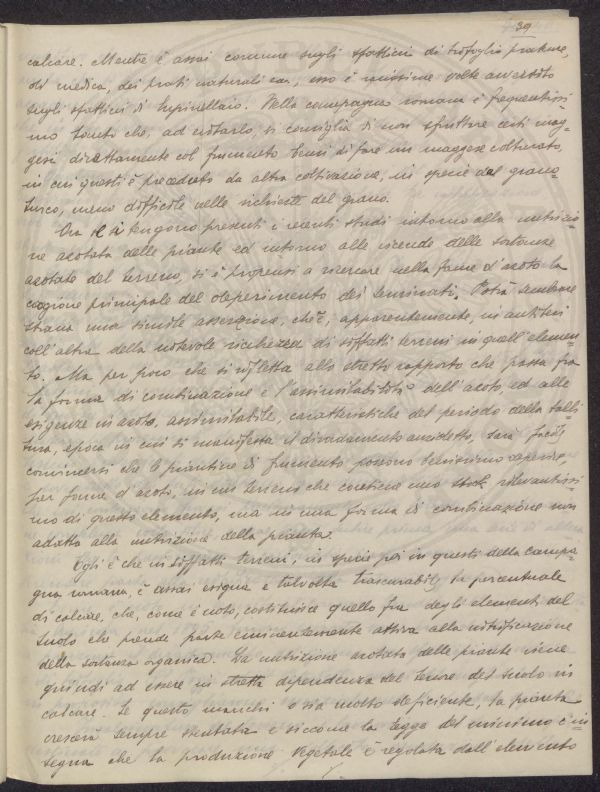 39
calcare. Mentre è assai comune sugli sfatticci di trifoglio pratense,
di medica, dei prati naturali ecc, esso è rarissime volte avvertito
sugli sfatticci di lupinellaio. Nella campagna romana è frequentissi-
mo tanto che, ad evitarlo, si consiglia di non sfruttare certi mag-
gesi direttamente col frumento, bensì di fare un maggese colturato,
in cui questi è preceduto da altra coltivazione, in specie dal grano-
turco, meno difficile nelle richieste del grano.
Ora se si tengono presenti i recenti studi intorno alla nutrizio-
ne azotata delle piante ed intorno alle vicende delle sostanze
azotate del terreno, si è propensi a ricercare nella fame d'azoto la
cagione principale del deperimento dei seminati. Potrà sembrare
strana una simile asserzione, chè, apparentemente, in antitesi
coll'altra della notevole ricchezza di siffatti terreni in quell'elemen-
to. Ma per poco che si rifletta allo stretto rapporto che passa fra
la forma di combinazione e l'assimilabilità dell'azoto, ed alle
esigenze in azoto, assimilabile, caratteristiche del periodo della talli-
tura, epoca in cui si manifesta il diradamento anzidetto, sarà facile
convincersi che le piantine di frumento possono benissimo deperire,
per fame d'azoto, in un terreno che contiene uno stok rilevantissi-
mo di questo elemento, ma in una forma di combinazione non
adatta alla nutrizione della pianta.
Egli è che in siffatti terreni, in specie poi in questi della campa-
gna romana, è assai esigua e talvolta trascurabile la percentuale
di calcare, che, come è noto, costituisce quello fra degli elementi del
suolo che prende parte eminentemente attiva alla nitrificazione
della sostanza organica. La nutrizione azotata delle piante viene
quindi ad essere in stretta dipendenza del tenore del suolo in
calcare. Se questo manchi o sia molto deficiente, la pianta
crescerà sempre stentata e siccome la legge del minimo c'in-
segna che la produzione vegetale è regolata dall'elemento